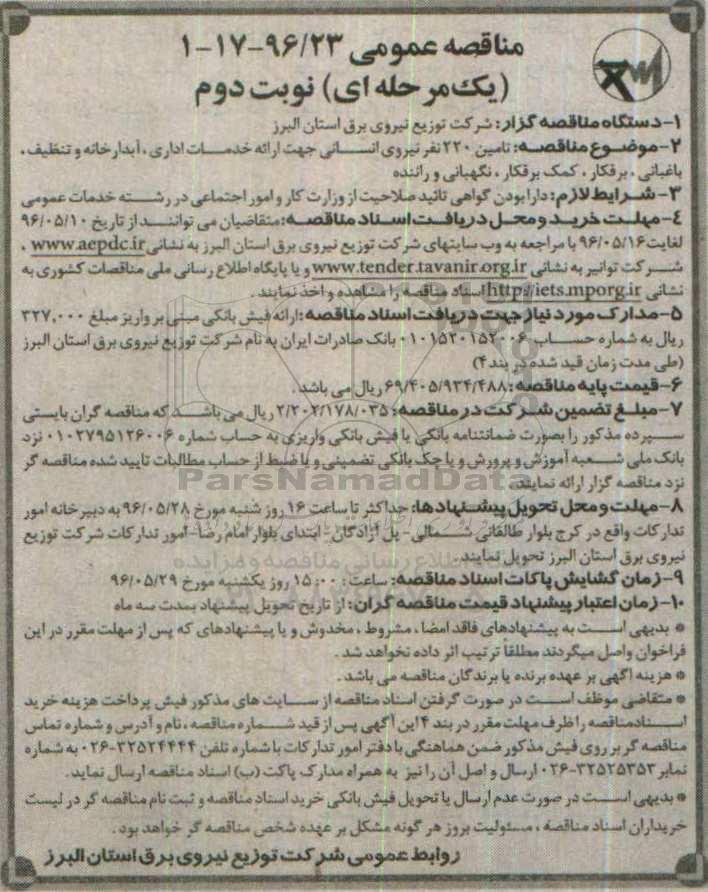 مناقصه عمومی ۹۶/۲۳-۱۷-۱
(یک مرحله ای) نوبت دوم
۱-دستگاه مناقصه گزار: شرکت توزیع نیروی برق استان البرز
۲-موضوع مناقصه: تامین ۲۲۰ نفر نیروی انسانی جهت ارائه خدمات اداری، آبدارخانه و تنظیف،
باغبانی، برقکار، کمک برقکار، نگهبانی و راننده
۳- شرایط لازم: دارا بودن گواهی تائید صلاحیت از وزارت کار و امور اجتماعی در رشته خدمات عمومی
۴-مهلت خرید و محل دریافت اسناد مناقصه: متقاضیان می توانند از تاریخ ۹۶/۰۵/۱۰
لغایت ۹۶/۰۵/۱۶ با مراجعه به وب سایتهای شرکت توزیع نیروی برق استان البرز به نشانی www.aepdc.ir ،
شرکت توانیر به نشانی www.tender.tavanir.org.ir و یا پایگاه اطلاع رسانی ملی مناقصات کشوری به
نشانی http://iets.mporg.ir اسناد مناقصه را مشاهده و اخذ نمایند.
۵-مدارک مورد نیاز جهت دریافت اسناد مناقصه: ارائه فیش بانکی مبنی بر واریز مبلغ ۳۲۷,۰۰۰
ریال به شماره حساب ۰۱۰۱۵۲۰۱۵۲۰۰۶ بانک صادرات ایران به نام شرکت توزیع نیروی برق استان البرز
(طی مدت زمان قید شده در بند ۴)
۶-قیمت پایه مناقصه: ۶۹/۴۰۵/۹۳۴/۴۸۸ ریال می باشد.
۷-مبلغ تضمین شرکت در مناقصه: ۲/۲۰۲/۱۷۸/۰۳۵ ریال می باشد که مناقصه گران بایستی
سپرده مذکور را بصورت ضمانتنامه بانکی یا فیش بانکی واریزی به حساب شماره ۰۱۰۲۷۹۵۱۲۶۰۰۶ نزد
بانک ملی شعبه آموزش و پرورش و یا چک بانکی تضمینی و یا ضبط از حساب مطالبات تایید شده مناقصه گر
نزد مناقصه گزار ارائه نمایند.
ParsNamadData
۸-مهلت و محل تحویل پیشنهادها: حداکثر تا ساعت ۱۶ روز شنبه مورخ ۹۶/۰۵/۲۸ به دبیرخانه امور
تدارکات واقع در کرج بلوار طالقانی شمالی- پل آزادگان- ابتدای بلوار امام رضا-امور تدارکات شرکت توزیع
نیروی برق استان البرز تحویل نمایند.
۹-زمان گشایش پاکات اسناد مناقصه: ساعت: ۱۵:۰۰ روز یکشنبه مورخ ۹۶/۰۵/۲۹
۱۰-زمان اعتبار پیشنهاد قیمت مناقصه گران: از تاریخ تحویل پیشنهاد بمدت سه ماه
* بدیهی است به پیشنهادهای فاقد امضا، مشروط، مخدوش و یا پیشنهادهای که پس از مهلت مقرر در این
فراخوان واصل میگردند مطلقاً ترتیب اثر داده نخواهد شد.
* هزینه آگهی بر عهده برنده یا برندگان مناقصه می باشد.
* متقاضی موظف است در صورت گرفتن اسناد مناقصه از سایت های مذکور فیش پرداخت هزینه خرید
اسناد مناقصه را ظرف مهلت مقرر در بند ۴ این آگهی پس از قید شماره مناقصه، نام و آدرس و شماره تماس
مناقصه گر بر روی فیش مذکور ضمن هماهنگی با دفتر امور تدارکات با شماره تلفن ۳۲۵۲۴۴۴۴-۰۲۶ به شماره
نمابر ۳۲۵۲۵۳۵۳-۰۲۶ ارسال و اصل آن را نیز به همراه مدارک پاکت (ب) اسناد مناقصه ارسال نماید.
* بدیهی است در صورت عدم ارسال یا تحویل فیش بانکی خرید اسناد مناقصه و ثبت نام مناقصه گر در لیست
خریداران اسناد مناقصه، مسئولیت بروز هر گونه مشکل بر عهده شخص مناقصه گر خواهد بود.
روابط عمومی شرکت توزیع نیروی برق استان البرز